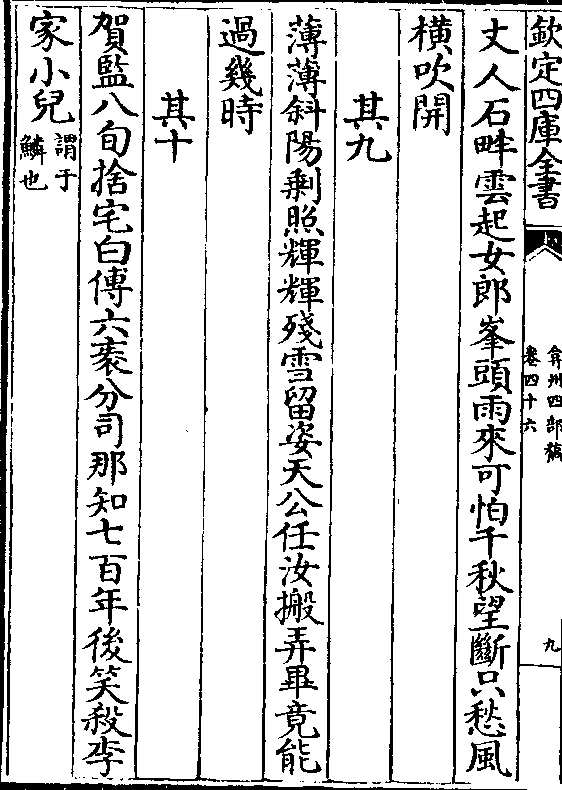 欽定四庫全書
弇州四部稿
卷四十六
九
丈人石畔雲起女郎峯頭雨來可怕千秋望斷只愁風
橫吹開
其九
薄薄斜陽剩照輝輝殘雪留姿天公任汝搬弄畢竟能
過幾時
其十
賀監八旬捨宅白傅六袠分司那知七百年後笑殺李
家小兒
謂于
鱗也